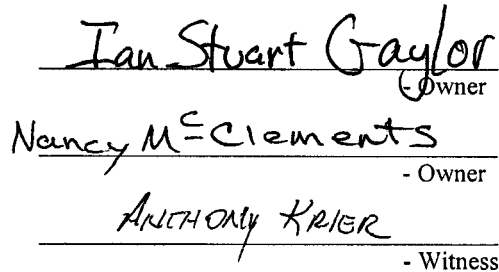 Ian Stuart Gaylor
- Owner
Nancy McClements
- Owner
ANTHONY KRIER
- Witness